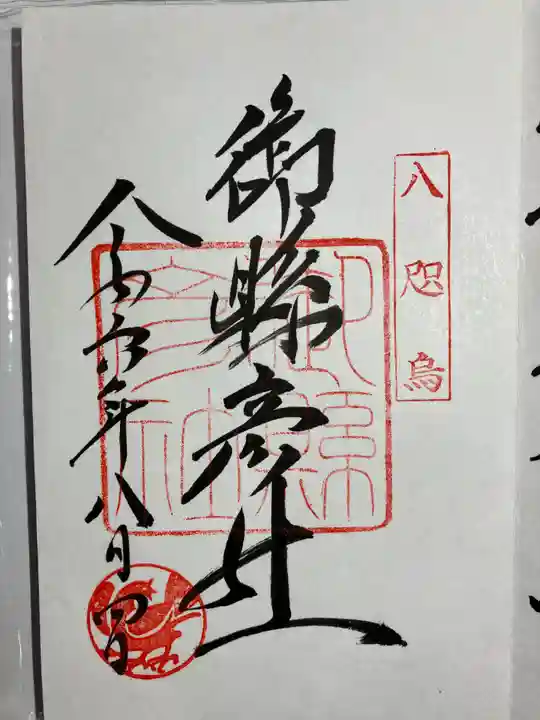 八咫烏
御縣彦社
令和六年八月四日